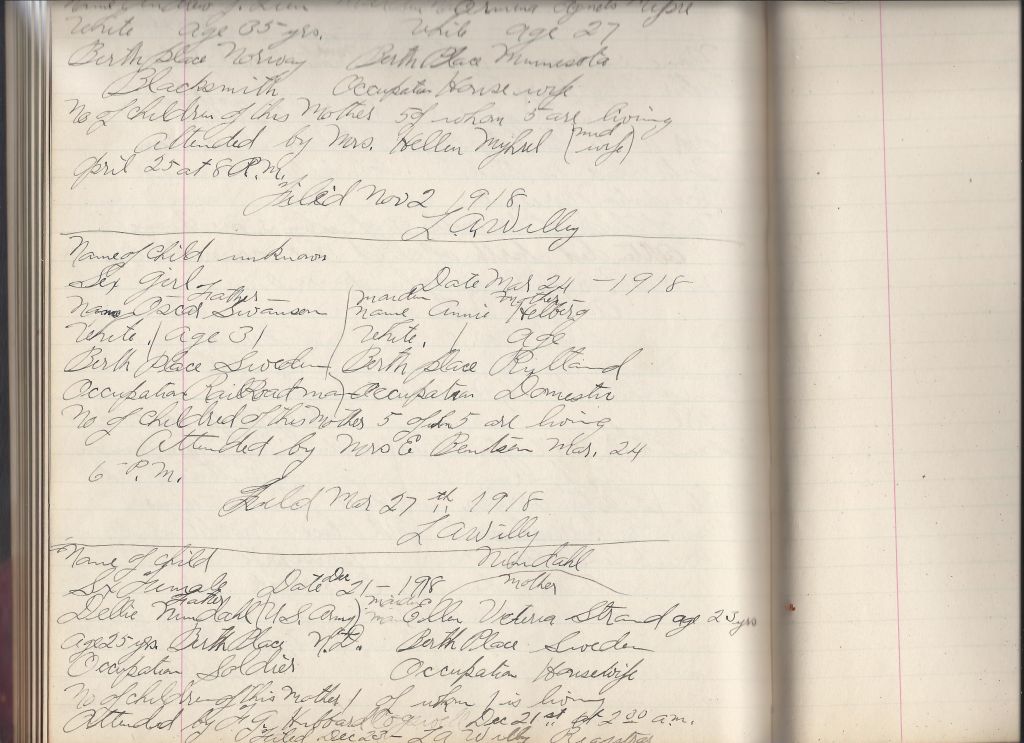 White age 35 yrs. White age 27
Berth place Norway Berth Place Minnesota
Blacksmith Occupation House wife
No of children of this Mother 5 of whom 5 are living
Attended by Mrs. Hellen (mid wife)
April 25 at 8 P.M.
Filed Nov 2 1918
L A Willy
Name of Child unknown
Sex girl Date Mar 24 - 1918
Father mother
Name Oscar Swanson maiden name Annie Helberg
White age 31 White age
Berth place Sweden Berth place
Occupation Occupation Domestic
No of children of this Mother 5 of 5 are living
Attended by Mrs E Bentsen Mar. 24
6 P.M.
Filed Mar 27th 1918
L A Willy
Name of Child Nundahl
Sx Female Date Dec 21 - 1918 mother
Father
Dellie Nundahl (U.S. Army) maiden na Ellen Victoria Strand age 23 yrs
age 25 yrs. Berth Place N.D. Berth Place Sweden
Occupation Soldier Occupation Housewife
No of children of this Mother 1 of whom 1 is living
Attended by Dec 21st at 2 00 a.m.
Filed Dec 23 - L A Willy Registrar